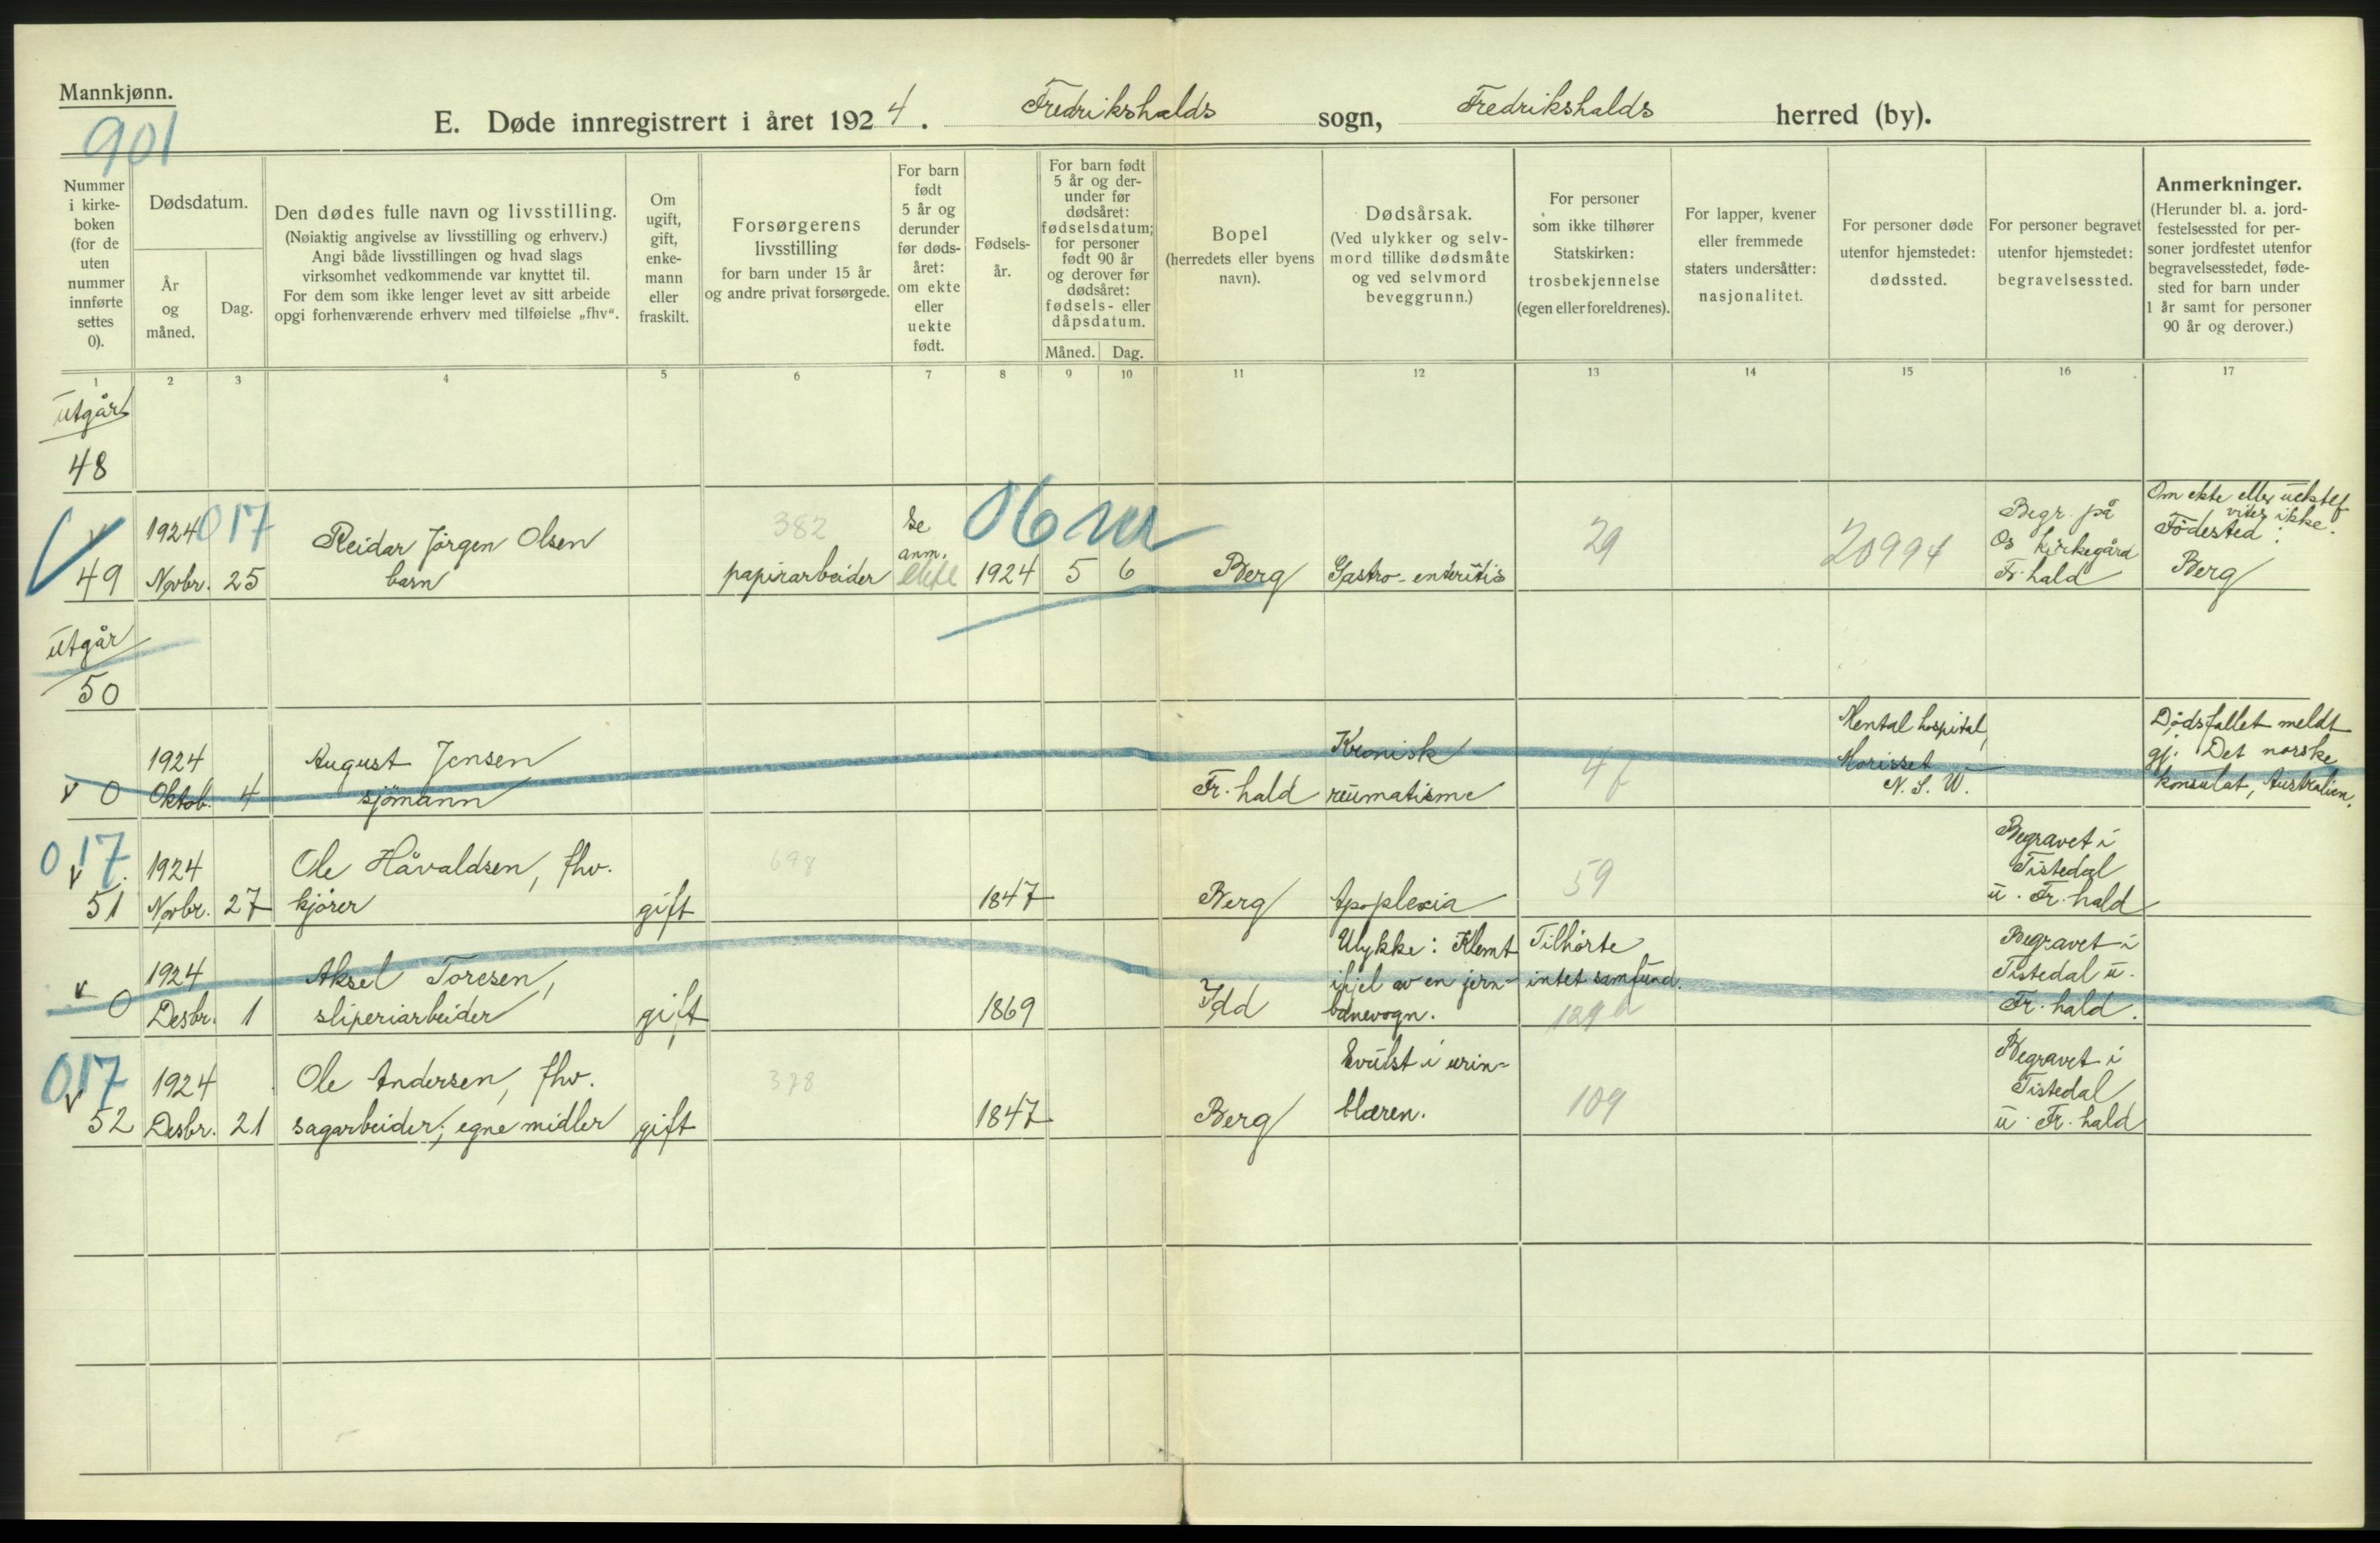 Mannkjønn.
901
E. Døde innregistrert i året 1924. Fredrikshalds sogn, Fredrikshalds herred (by).
Nummer i kirke-boken (for de uten nummer innførte settes 0).
Dødsdatum.
År og måned.
Dag.
Den dødes fulle navn og livsstilling.
(Nøiaktig angivelse av livsstilling og erhverv.)
Angi både livsstillingen og hvad slags
virksomhet vedkommende var knyttet til.
For dem som ikke lenger levet av sitt arbeide
opgi forhenværende erhverv med tilføielse „fhv“.
Om ugift, gift, enke-mann eller fraskilt.
Forsørgerens
livsstilling
for barn under 15 år
og andre privat forsørgede.
For barn født 5 år og derunder før døds-året: om ekte eller uekte født.
Fødsels-år.
For barn født 5 år og der-under før dødsåret: fødselsdatum; for personer født 90 år og derover før dødsåret: fødsels- eller dåpsdatum.
Måned. Dag.
Bopel
(herredets eller byens
navn).
Dødsårsak.
(Ved ulykker og selv-
mord tillike dødsmåte
og ved selvmord
beveggrunn.)
For personer
som ikke tilhører
Statskirken:
trosbekjennelse
(egen eller foreldrenes).
For lapper, kvener
eller fremmede
staters undersåtter:
nasjonalitet.
For personer døde
utenfor hjemstedet:
dødssted.
For personer begravet
utenfor hjemstedet:
begravelsessted.
Anmerkninger.
(Herunder bl. a. jord-
festelsessted for per-
soner jordfestet utenfor
begravelsesstedet, føde-
sted for barn under
1 år samt for personer
90 år og derover.)
1 2 3 4 5 6 7 8 9 10 11 12 13 14 15 16 17
Utgår
48
49 1924 Novbr. 25 017
Reidar Jörgen Olsen
barn
382
papirarbeider
se anm.
1924 5 6
Berg Gastro-enteritis
29
20994
Begr. på
Os kirkegård
Fr.hald
Om ekte eller uektef.
vites ikke.
Födested:
Berg
Utgår
50
0 1924 Oktob. 4
August Jensen
sjömann
Fr. hald
Kronisk
reumatisme
4f
Mental hospital,
Morisset
N. S. W.
Dödsfallet meldt
gj. Det norske
konsulat, Australien.
017
51 1924 Novbr. 27
Ole Håvaldsen, fhv.
kjörer
gift
698
1847
Berg Apoplexia
59
Begravet i
Tistedal
u. Fr. hald
0 1924 Desbr. 1
Aksel Toresen,
sliperiarbeider
gift
1869
Idd
Ulykke: Klemt
ihjel av en jern-
banevogn.
Tilhörte
intet samfund.
Begravet i
Tistedal u.
Fr. hald.
017
52 1924 Desbr. 21
Ole Andersen, fhv.
sagarbeider; egne midler
gift
378
1847
Berg
Svulst i urin-
blæren.
109
Begravet i
Tistedal
u. Fr. hald